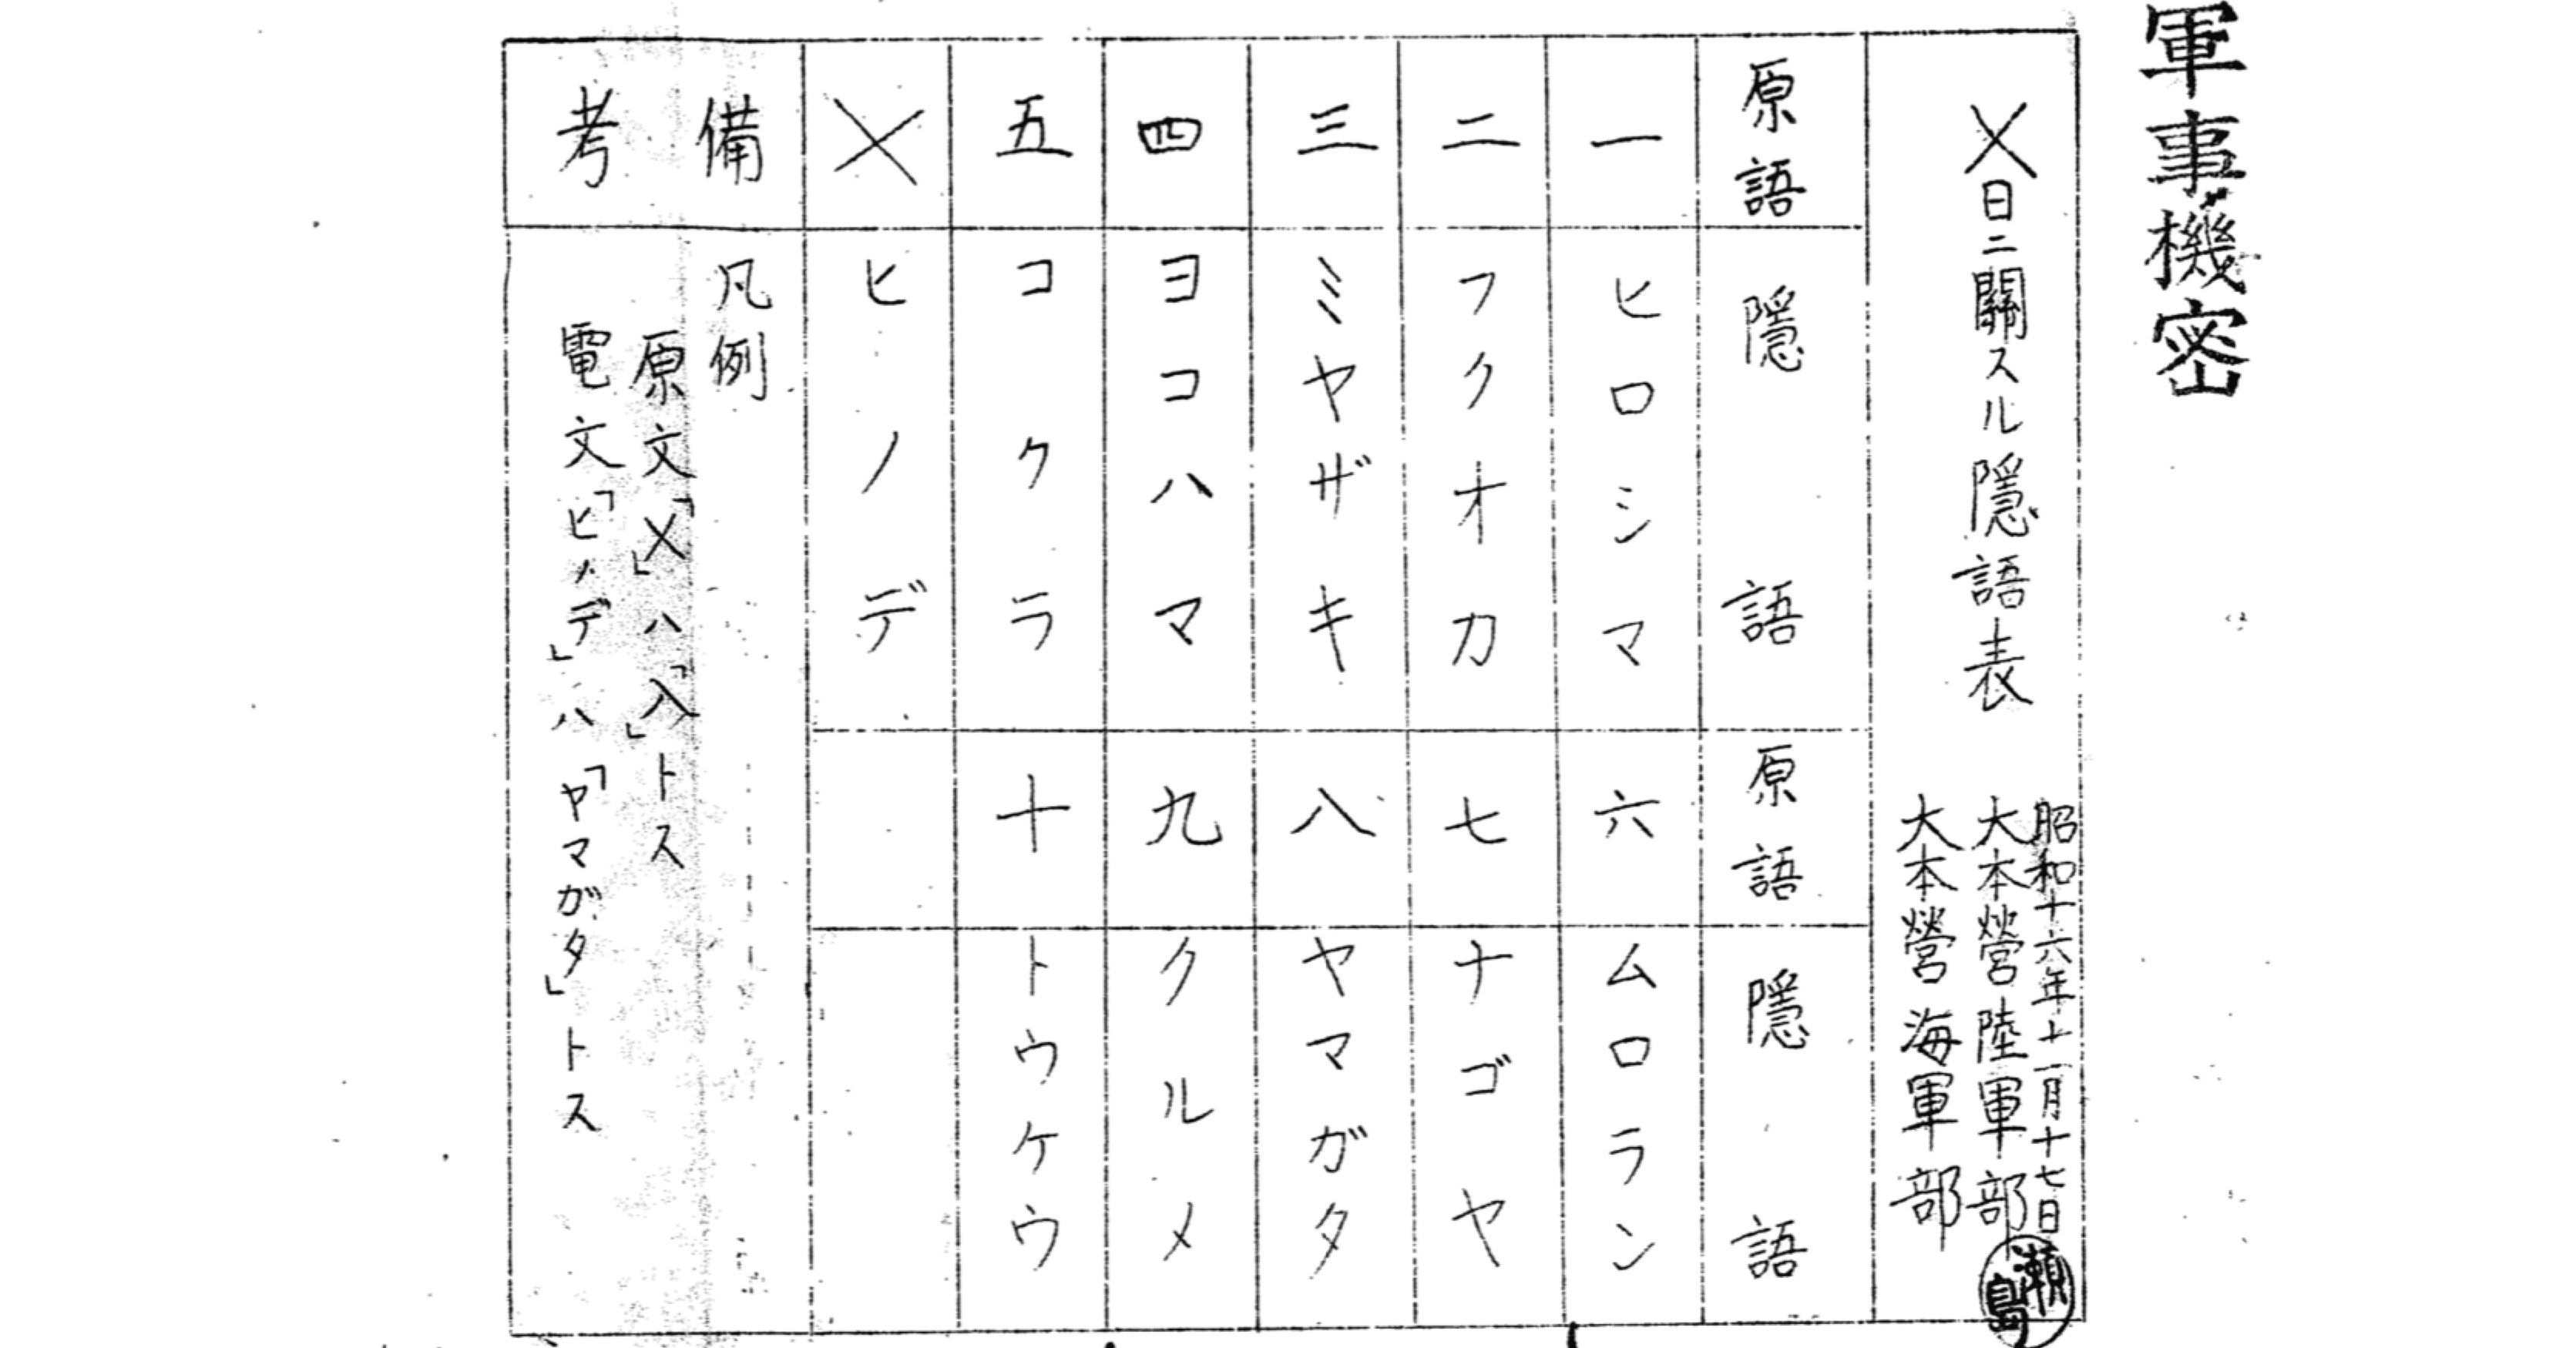 軍事機密
╳日ニ關スル隱語表
昭和十六年十一月十七日
大本營陸軍部
大本營海軍部
瀬島
原語 隱語 原語 隱語
一 ヒロシマ 六 ムロラン
二 フクオカ 七 ナゴヤ
三 ミヤザキ 八 ヤマガタ
四 ヨコハマ 九 クルメ
五 コクラ 十 トウケウ
╳ ヒノデ
備考
凡例
原文「╳」ハ「八」トス
電文「ヒノデ」ハ「ヤマガタ」トス